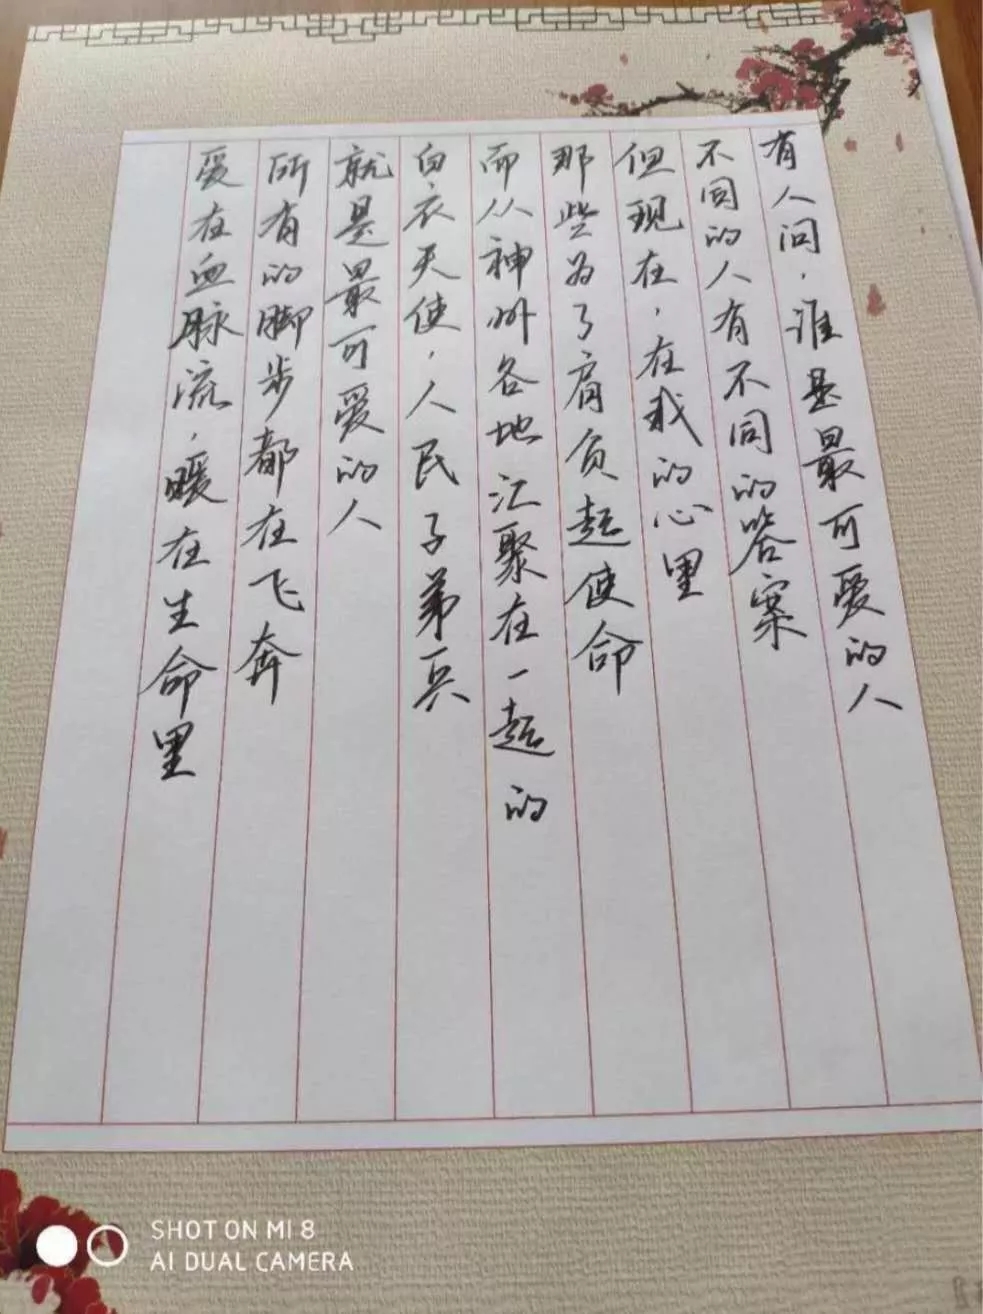 有人问，谁是最可爱的人
不同的人有不同的答案
但现在，在我的心里
那些为了肩负起使命
而从神州各地汇聚在一起的
白衣天使，人民子弟兵
就是最可爱的人
所有的脚步都在飞奔
爱在血脉流，暖在生命里
SHOT ON MI 8
AI DUAL CAMERA